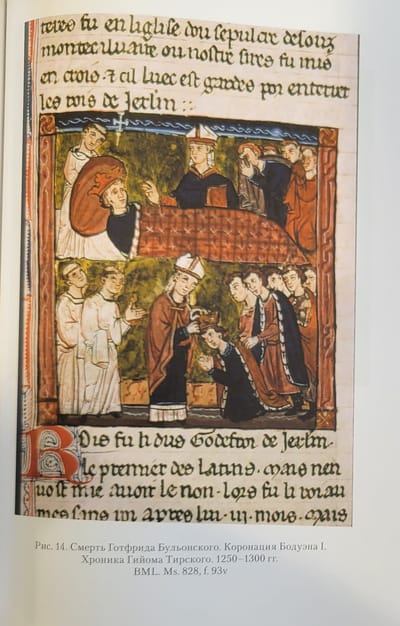 teres fu en liglise dou sepulcr desouz
monteeluaire ou nostre sires fu mis
en crois. & cil luec est gardes por enterrer
les rois de Jerlm::
Rois fu li dus Godefroi de Jerlm.
le premier des latins. mais nen
uost mie auoir le non. lors fu li roiau
mes sans roi apres lui. iii. mois. mais
Рис. 14. Смерть Готфрида Бульонского. Коронация Бодуэна I.
Хроника Гийома Тирского. 1250–1300 гг.
BML. Ms. 828, f. 93v